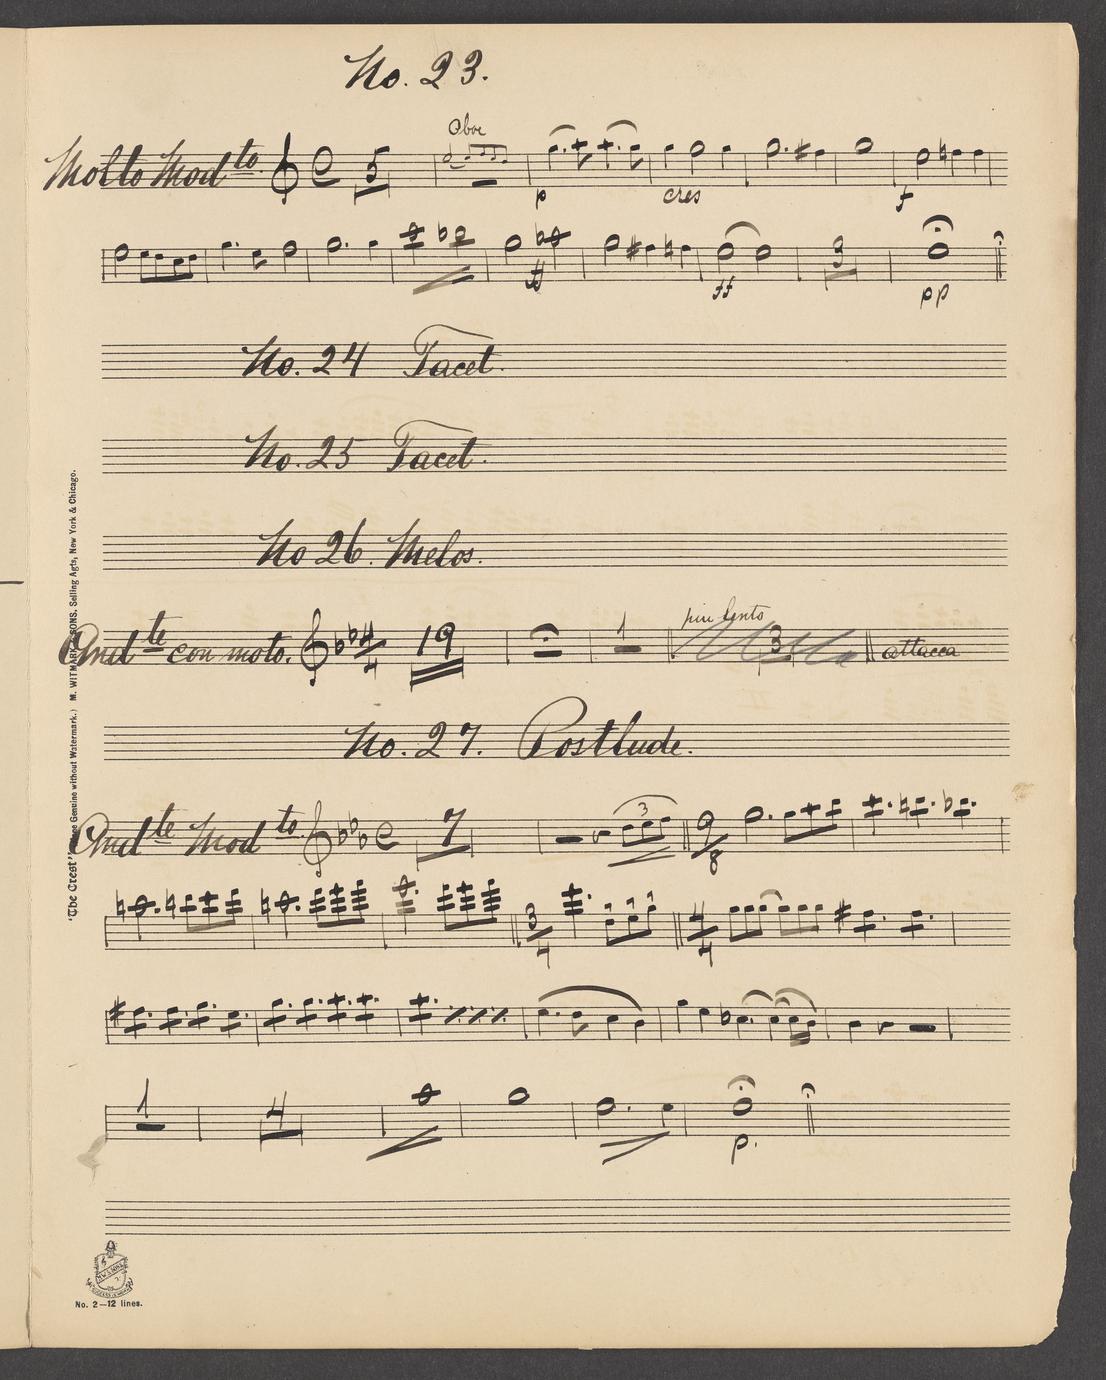 No. 23.
Oboe
Molto Modto. 5
p cres f
ff ff 3 pp
No. 24 Tacet.
No. 25 Tacet.
No 26. Melos.
piu lento
Andte con moto. 4 4 19 1 3 attacca
No. 27. Postlude.
Andte Modto. 7 3 9 8
3 4 1 1 1 4 4
1 4
p.
M. WITMARK & SONS, Selling Agts, New York & Chicago.
"The Crest" Genuine without Watermark.)
No. 2—12 lines.